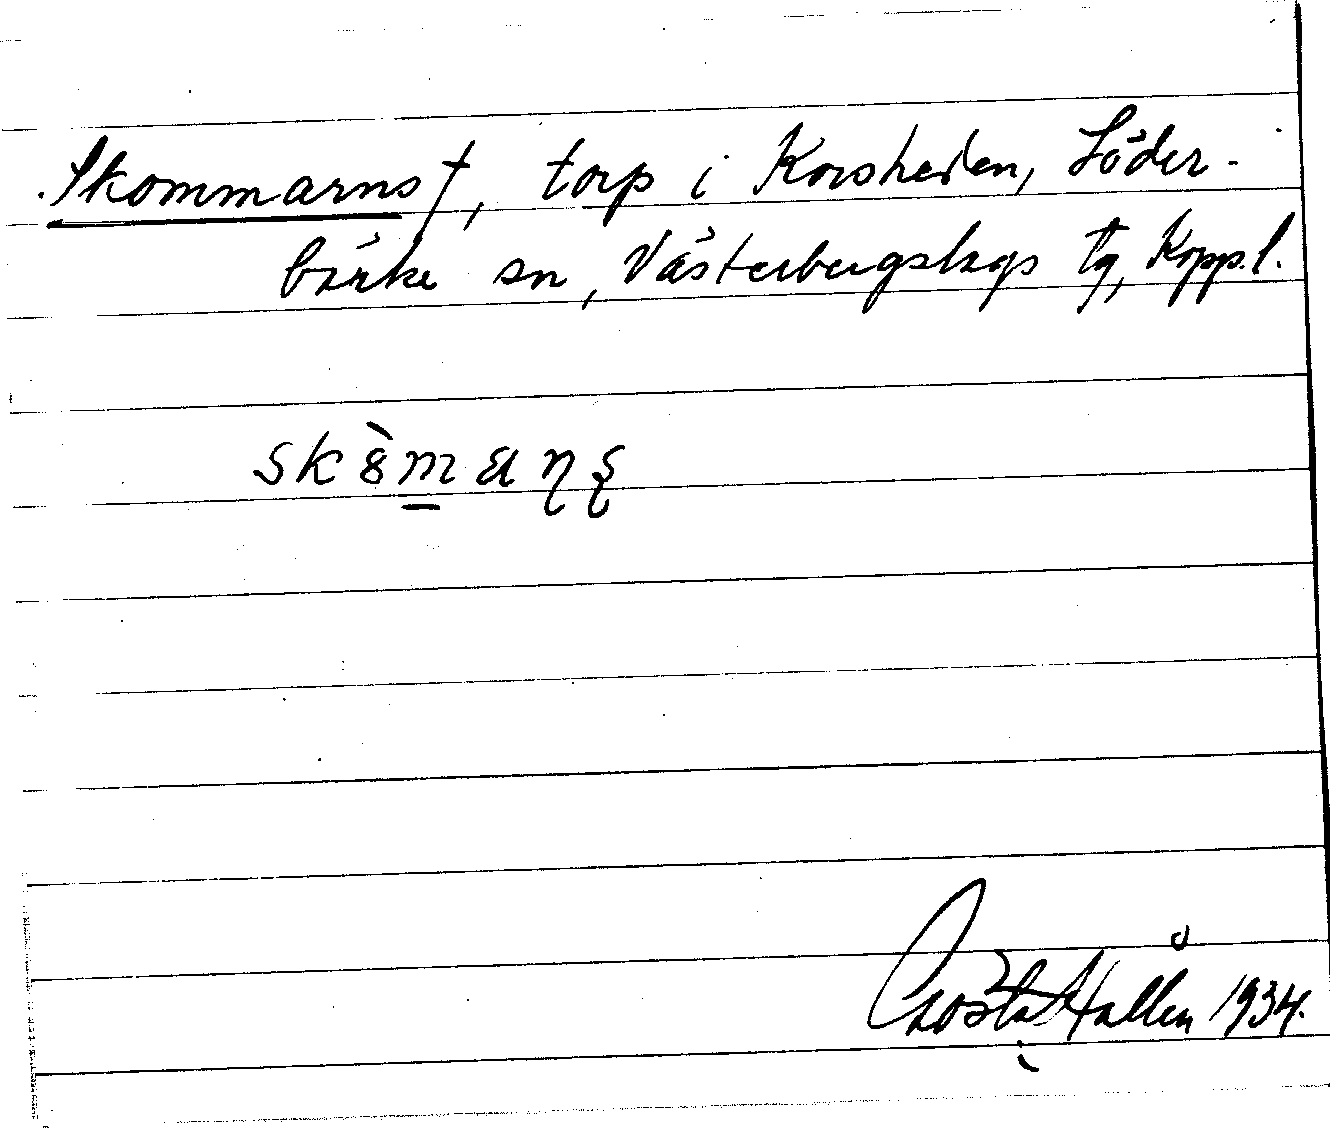 Skommarns †, torp i Korsheden, Söder-
bärke sn, Västerbergslags tg, Kopp.l.
sk8̀m̲aɳʂ
Gösta Hallén 1934.